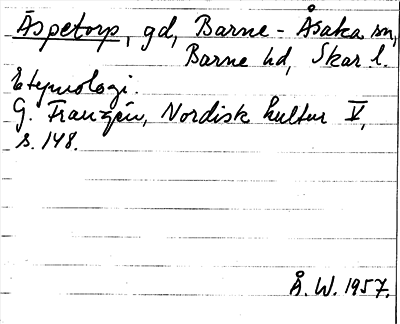 Äspetorp, gd, Barne-Åsaka sn,
Barne hd, Skar l.
Etymologi.
G. Franzén, Nordisk kultur V,
s. 148.
Å. W. 1957.